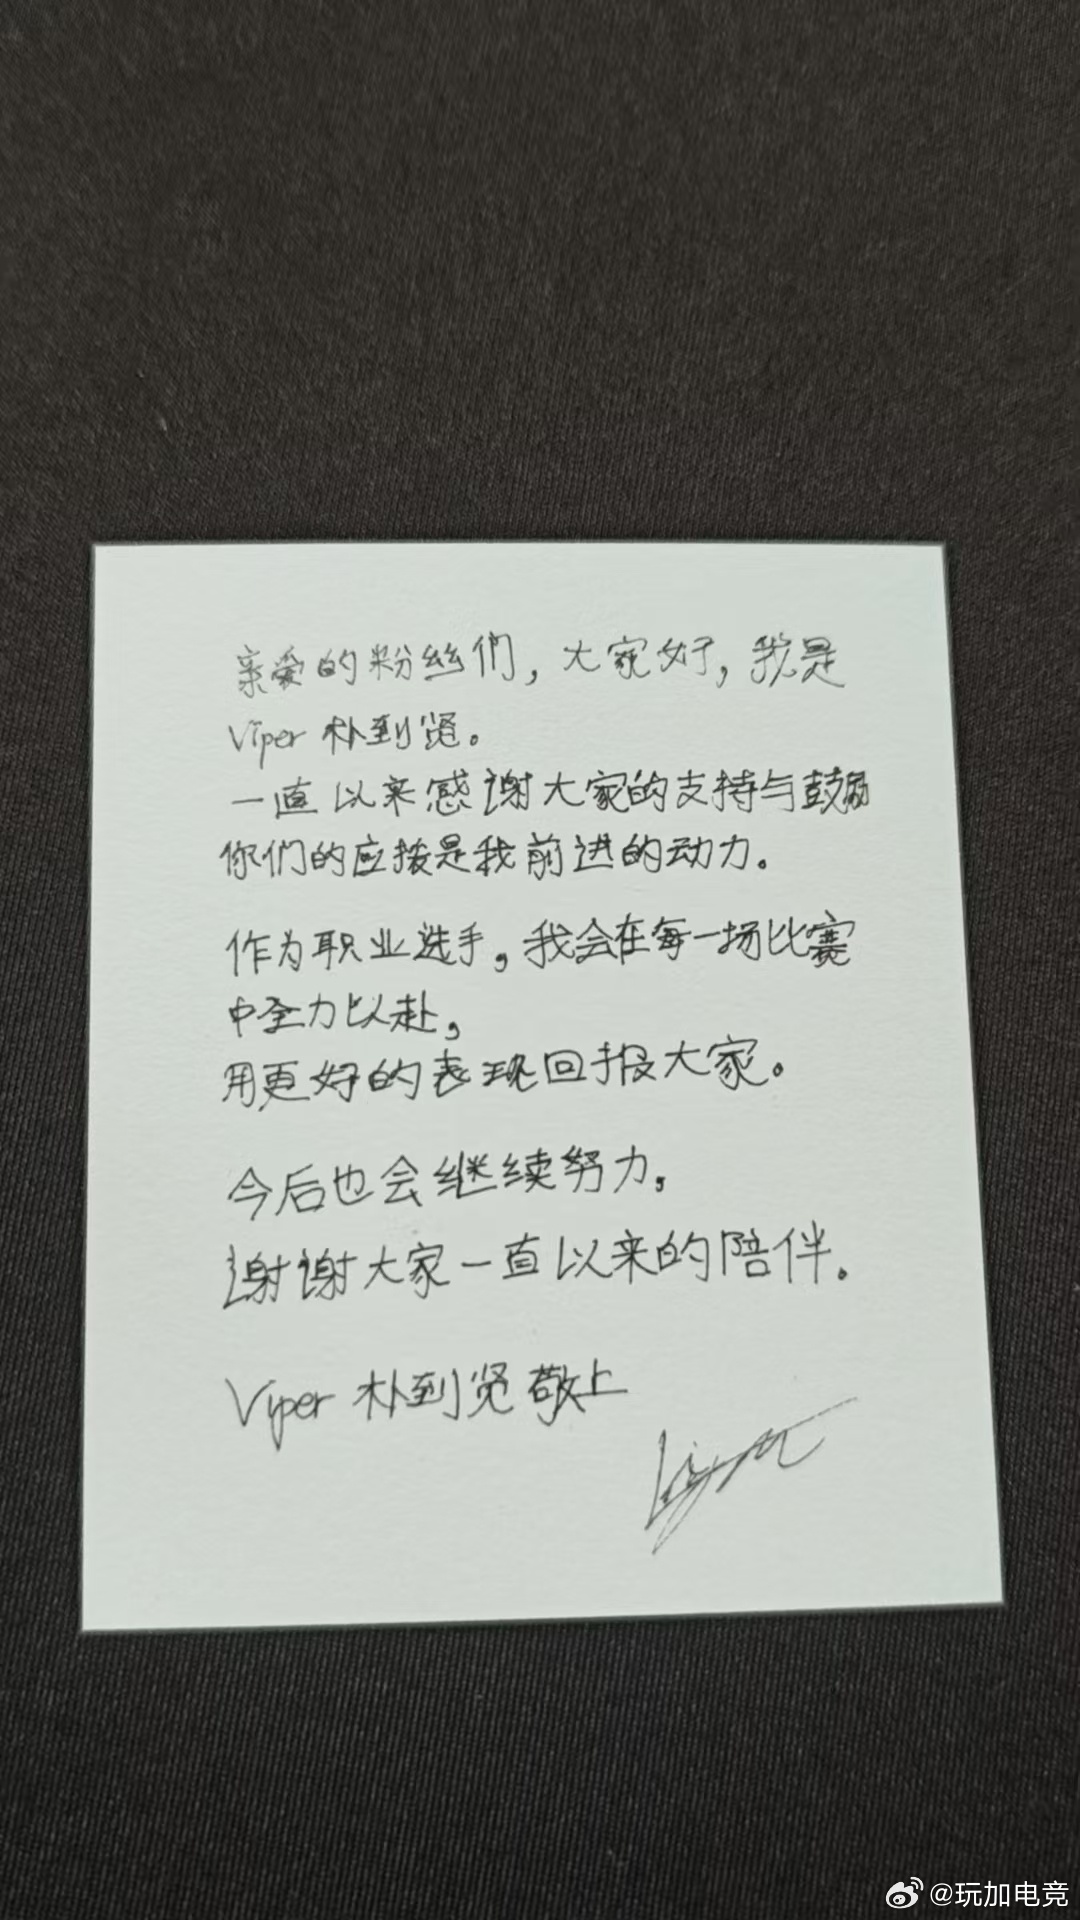 亲爱的粉丝们，大家好，我是
Viper 朴到贤。
一直以来感谢大家的支持与鼓励
你们的应援是我前进的动力。
作为职业选手，我会在每一场比赛
中全力以赴，
用更好的表现回报大家。
今后也会继续努力，
谢谢大家一直以来的陪伴。
Viper 朴到贤 敬上
@玩加电竞